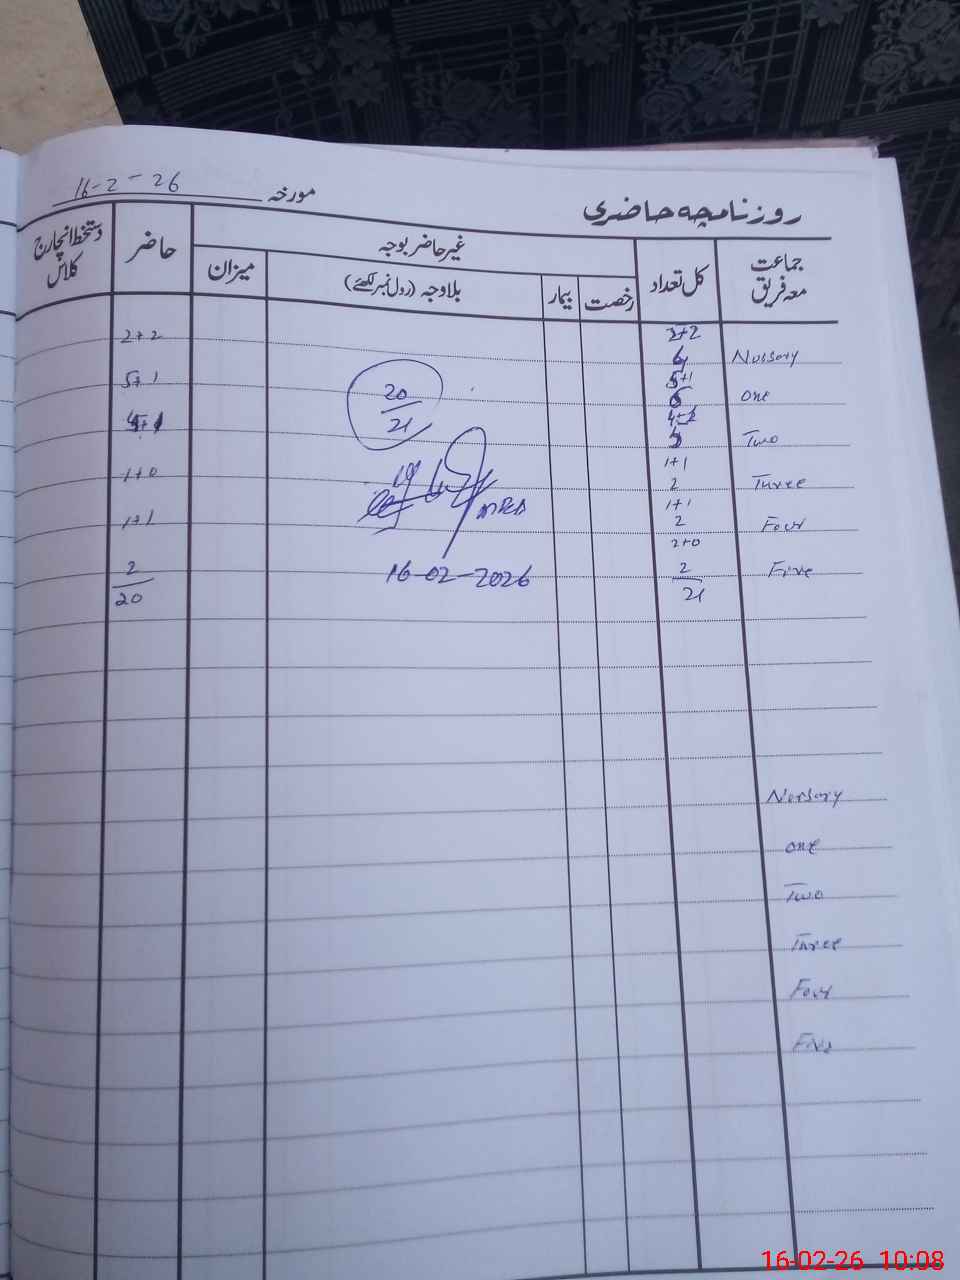 روزنامچہ حاضری
مورخہ 16-2-26
جماعت معہ فریق
کل تعداد
غیر حاضر بوجہ
رخصت
بیمار
بلاوجہ (رول نمبر لکھئے)
میزان
حاضر
دستخط انچارج کلاس
2+2 2+2
Nursary
5+1 5+1
one 6 20
21
Two
1+1 1+0
Three 2
1+1 1+1
Four 2
2+0
Five 2 2
21 20
16-02-2026
Nursary
one
Two
Three
Four
Five
16-02-26 10:08